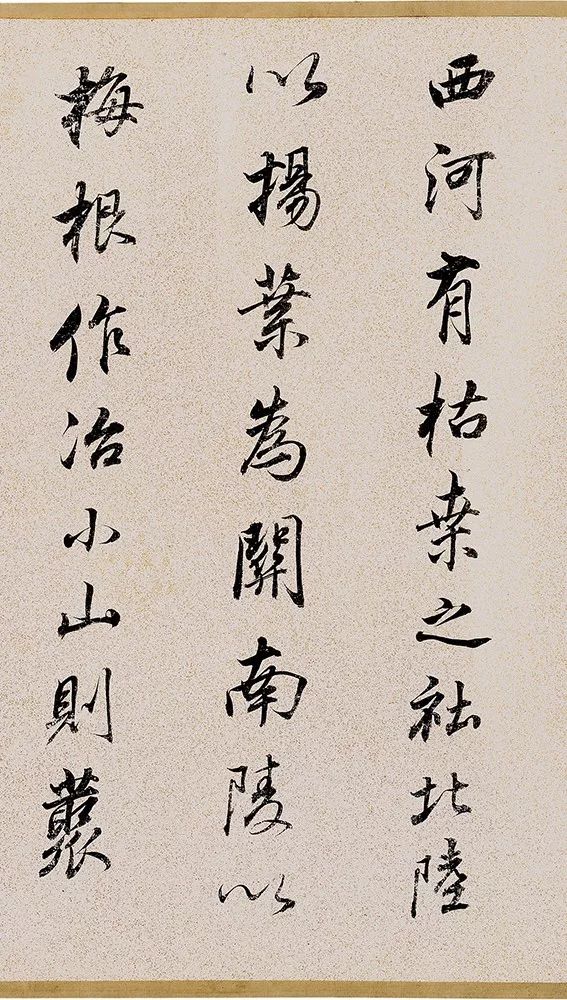 西河有枯桒之社北陸
以揚葉為關南陵以
梅根作冶小山則藂